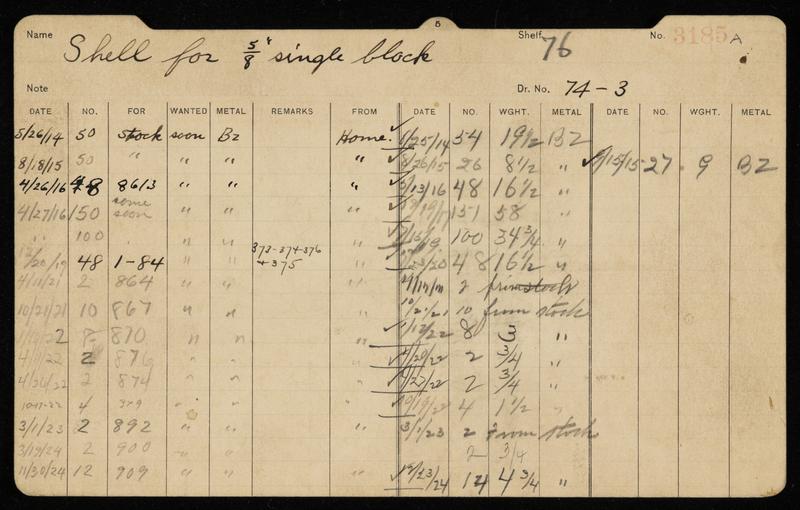 5
Name Shell for 5/8" single block Shelf 76 No. 3185 A
Note Dr. No. 74-3
DATE NO. FOR WANTED METAL REMARKS FROM DATE NO. WGHT. METAL DATE NO. WGHT. METAL
5/26/14 50 stock soon Bz Home ✓ 54 19 1/2 BZ
8/18/15 50 " " " " ✓ 8/26/15 26 8 1/2 " ✓ 9/15/15 27 9 BZ
4/26/16 48 8613 " " " ✓ 5/13/16 48 16 1/2 "
4/27/16 150 some soon " " " 151 58 "
" 100 " " " ✓ 100 34 3/4 "
12/20/19 48 1-84 " " 373-374-376 + 375 " 48 16 1/2 "
4/11/21 2 864 " " " 2 from stock
10/21/21 10 867 " " " 10/21/21 10 from stock
22 8 870 " " " ✓ 1/12/22 8 6 "
4/11/22 2 876 " " " ✓ 2 3/4 "
2 874 " " " ✓ 2 3/4 "
10-17-22 4 " " " ✓ 10/19/22 4 1 1/2 "
3/1/23 2 892 " " " 3/1/23 2 from stock
3/19/24 2 900 2 3/4
11/30/24 12 909 " " " ✓ 12/23/24 14 4 3/4 "